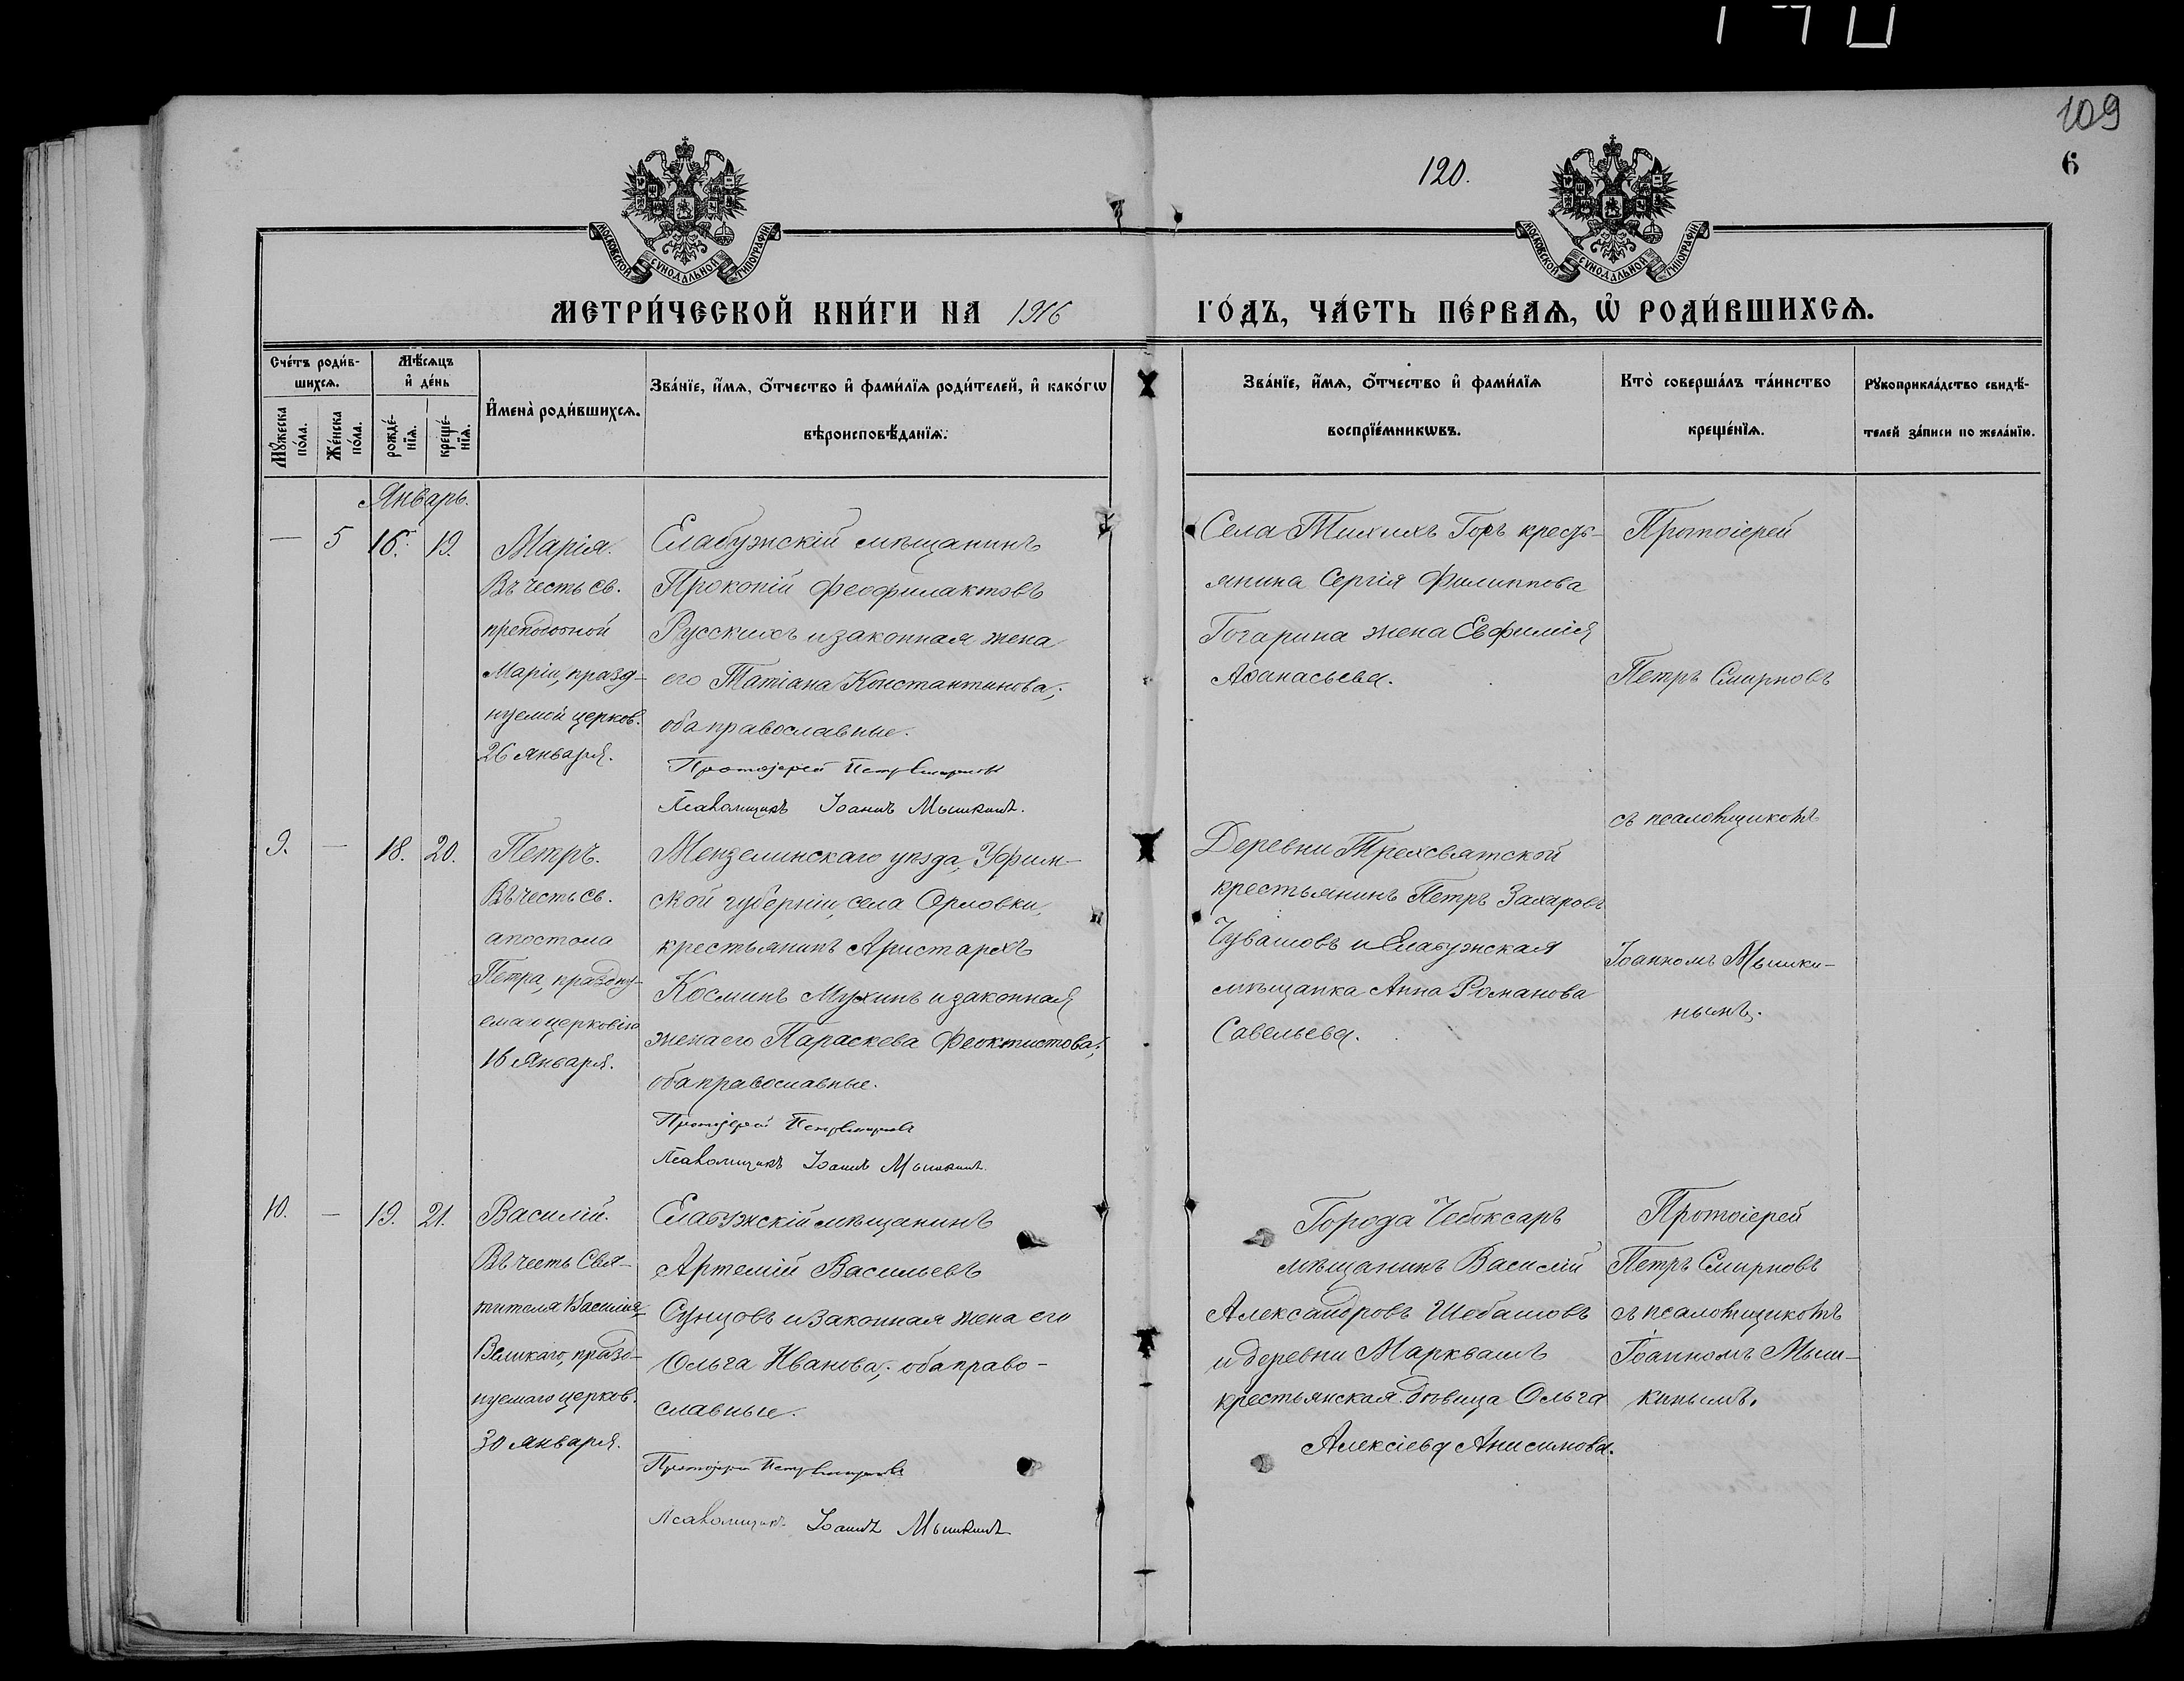 109
120.
6
МОСКОВСКОЙ СУНОДАЛЬНОЙ ТИПОГРАФІИ
МОСКОВСКОЙ СУНОДАЛЬНОЙ ТИПОГРАФІИ
МЕТРИ́ЧЕСКОЙ КНИ́ГИ НА 1916 ГО́ДЪ, ЧА́СТЬ ПЕ́РВАѦ, Ѡ РОДИ́ВШИХСѦ.
Сче́тъ роди́в-
шихсѧ.
Мꙋ́жеска
по́ла.
Же́нска
по́ла.
Мѣ́сѧцъ
и҆ де́нь
рожде́-
нїѧ.
креще́-
нїѧ.
И҆мена̀ роди́вшихсѧ.
Зва́нїе, и҆́мѧ, ѻ҆́тчество и҆ фами́лїѧ роди́телей, и҆ како́гѡ
вѣроисповѣ́данїѧ.
Зва́нїе, и҆́мѧ, ѻ҆́тчество и҆ фами́лїѧ
воспрїе́мникѡвъ.
Кто̀ соверша́лъ та́инство
креще́нїѧ.
Рꙋкоприкла́дство свидѣ́-
телей за́писи по жела́нїю.
Январь.
— 5 16. 19.
Марія.
Въ честь св.
преподобной
Маріи, празд-
нуемой церков.
26 января.
Елабужскій мѣщанинъ
Прокопій Феофилактовъ
Русскихъ и законная жена
его Татіана Константинова;
оба православные.
Протоіерей Петръ Смирновъ
Псаломщикъ Іоаннъ Мышкинъ.
Села Тихихъ Горъ кресть-
янина Сергія Филиппова
Гогарина жена Евфимія
Аѳанасьева.
Протоіерей
Петръ Смирновъ
съ псаломщикомъ
Іоанномъ Мышки-
нымъ.
9. — 18. 20.
Петръ.
Въ честь св.
апостола
Петра, праздну-
емаго церковію
16 января.
Мензелинскаго уѣзда, Уфим-
ской губерніи, села Орловки,
крестьянинъ Аристархъ
Косминъ Мухинъ и законная
жена его Параскева Феоктистова;
оба православные.
Протоіерей Петръ Смирновъ
Псаломщикъ Іоаннъ Мышкинъ.
Деревни Трехсвятской
крестьянинъ Петръ Захаровъ
Чувашовъ и Елабужская
мѣщанка Анна Романова
Савельева.
10. — 19. 21.
Василій.
Въ честь Свя-
тителя Василія
Великаго, празд-
нуемаго церков.
30 января.
Елабужскій мѣщанинъ
Артемій Васильевъ
Сунцовъ и законная жена его
Ольга Иванова; оба право-
славные.
Протоіерей Петръ Смирновъ
Псаломщикъ Іоаннъ Мышкинъ
Города Чебоксаръ
мѣщанинъ Василій
Александровъ Шебашовъ
и деревни Марквашъ
крестьянская дѣвица Ольга
Алексіева Анисимова.
Протоіерей
Петръ Смирновъ
съ псаломщикомъ
Іоанномъ Мыш-
кинымъ.